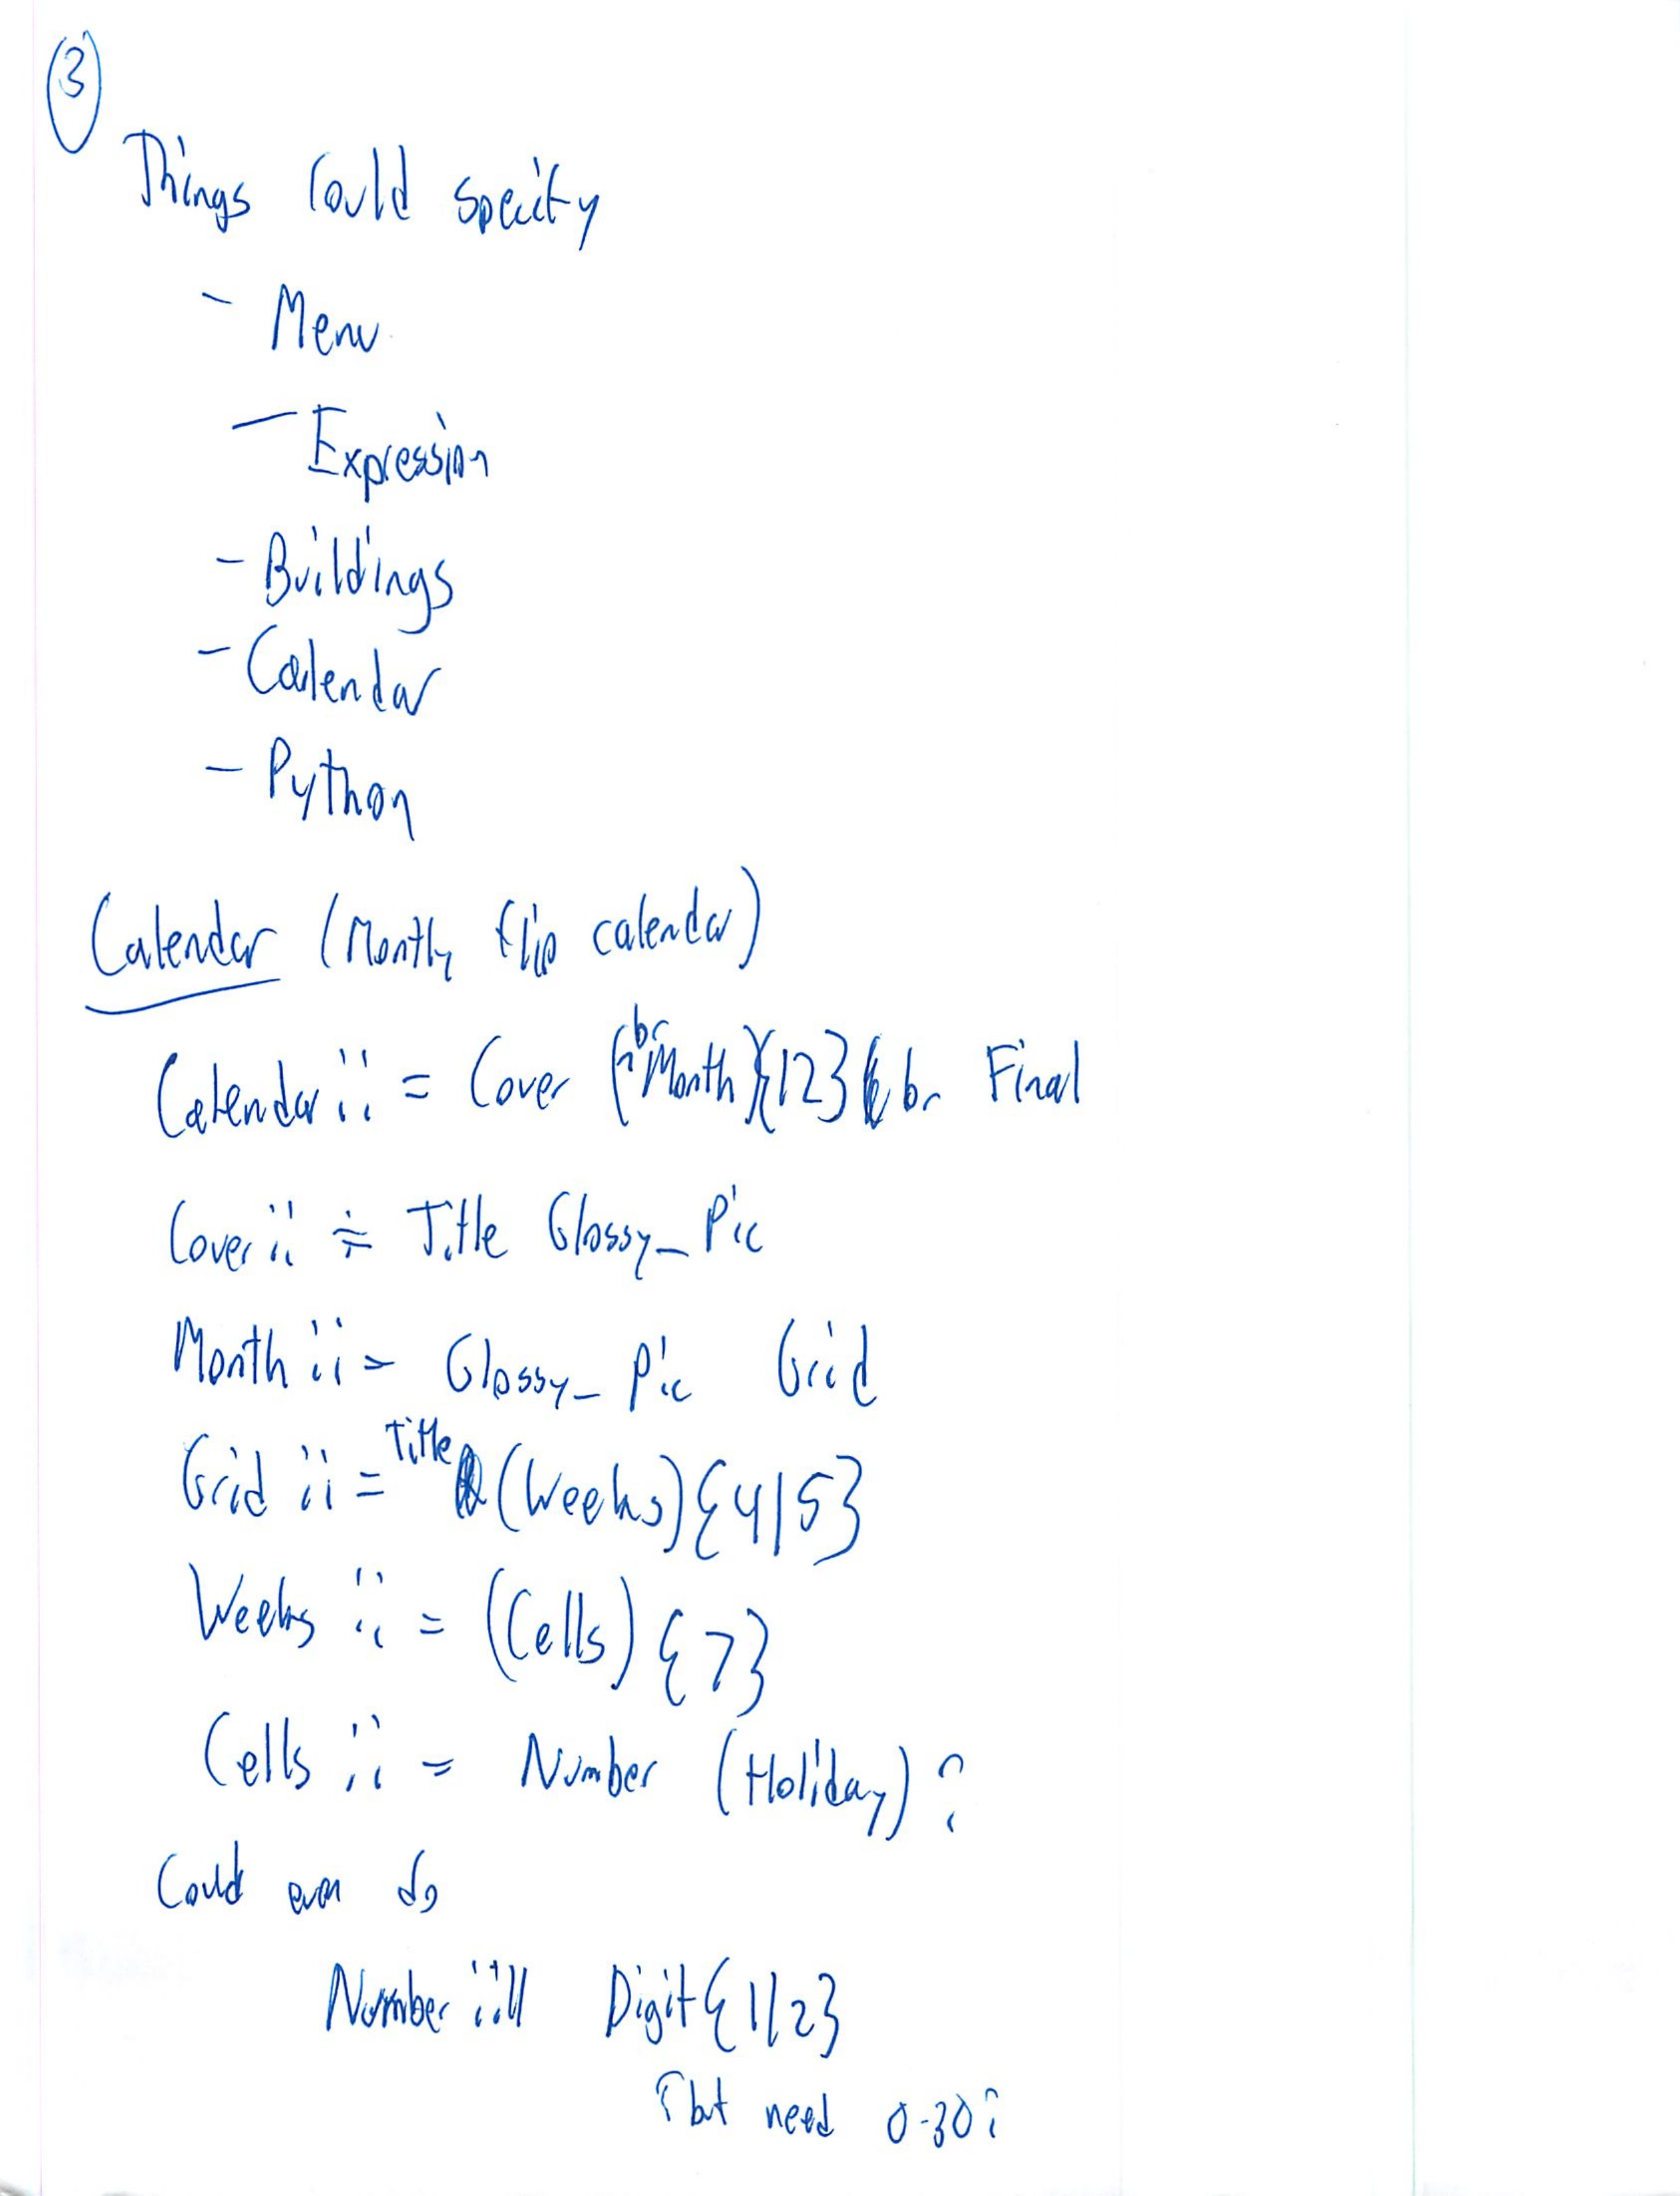 3
Things Could specify
- Menu
- Expression
- Buildings
- Calendar
- Python
Calendar (Montly flip calendar)
Calendar ::= Cover (br Month){12} br Final
Cover ::= Title Glossy_Pic
Month ::= Glossy_Pic Grid
Grid ::= Title (Weeks){4|5}
Weeks ::= (Cells){7}
Cells ::= Number (Holiday)?
Could even do
Number ::= Digit{1|2}
↑ but need 0-30?